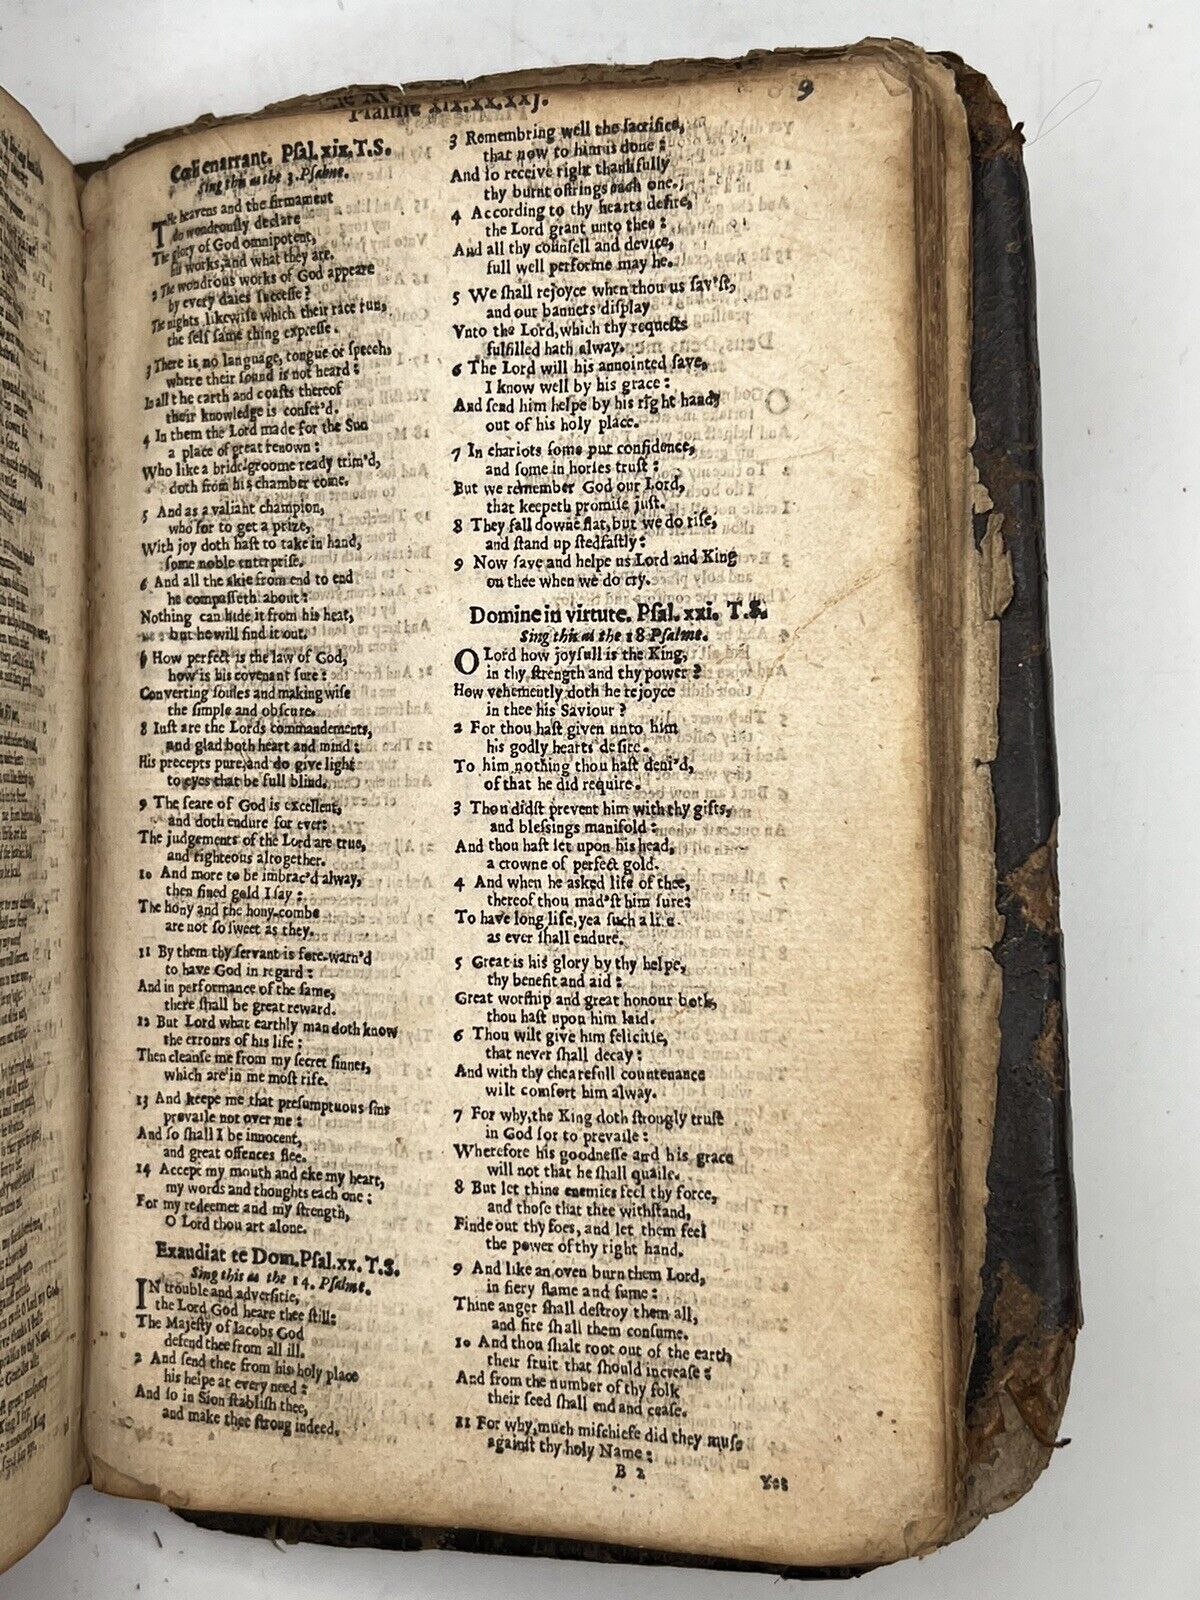 Psalme xix.xx.xxj.
9
Cœli enarrant. Psal. xix. T.S.
Sing this as the 3. Psalme.
THe heavens and the firmament
do wondrously declare
The glory of God omnipotent,
his works, and what they are.
2 The wondrous works of God appeare
by every daies successe?
The nights likewise which their race run,
the self same thing expresse.
3 There is no language, tongue or speech,
where their sound is not heard:
In all the earth and coasts thereof
their knowledge is confer'd.
4 In them the Lord made for the Sun
a place of great renown:
Who like a bride-groome ready trim'd,
doth from his chamber come.
5 And as a valiant champion,
who for to get a prize,
With joy doth hast to take in hand,
some noble enterprise.
6 And all the skie from end to end
he compasseth about:
Nothing can hide it from his heat,
but he will find it out.
6 How perfect is the law of God,
how is his covenant sure:
Converting soules and making wise
the simple and obscure.
8 Iust are the Lords commandements,
and glad both heart and mind:
His precepts pure, and do give light
to eyes that be full blind.
9 The feare of God is excellent,
and doth endure for ever:
The judgements of the Lord are true,
and righteous altogether.
10 And more to be imbrac'd alway,
then fined gold I say:
The hony and the hony-combe
are not so sweet as they.
11 By them thy servant is fore-warn'd
to have God in regard:
And in performance of the same,
there shall be great reward.
12 But Lord what earthly man doth know
the errours of his life:
Then cleanse me from my secret sinnes,
which are in me most rife.
13 And keepe me that presumptuous sins
prevaile not over me:
And so shall I be innocent,
and great offences flee.
14 Accept my mouth and eke my heart,
my words and thoughts each one:
For my redeemer and my strength,
O Lord thou art alone.
Exaudiat te Dom. Psal. xx. T.S.
Sing this as the 14. Psalme.
IN trouble and adversitie,
the Lord God heare thee still:
The Majesty of Iacobs God
defend thee from all ill.
2 And send thee from his holy place
his helpe at every need:
And so in Sion stablish thee,
and make thee stroug indeed.
3 Remembring well the sacrifice,
that now to him is done:
And so receive right thankfully
thy burnt offrings each one.
4 According to thy hearts desire,
the Lord grant unto thee:
And all thy counsell and device,
full well performe may he.
5 We shall rejoyce when thou us sav'st,
and our banners display
Vnto the Lord, which thy requests
fulfilled hath alway.
6 The Lord will his annointed save,
I know well by his grace:
And send him helpe by his right handy
out of his holy place.
7 In chariots some put confidence,
and some in horses trust:
But we remember God our Lord,
that keepeth promise just.
8 They fall downe flat, but we do rise,
and stand up stedfastly:
9 Now save and helpe us Lord and King
on thee when we do cry.
Domine in virtute. Psal. xxi. T.S.
Sing this as the 18 Psalme.
O Lord how joyfull is the King,
in thy strength and thy power?
How vehemently doth he rejoyce
in thee his Saviour?
2 For thou hast given unto him
his godly hearts desire.
To him nothing thou hast deni'd,
of that he did require.
3 Thou didst prevent him with thy gifts,
and blessings manifold:
And thou hast let upon his head,
a crowne of perfect gold.
4 And when he asked life of thee,
thereof thou mad'st him sure:
To have long life, yea such a life
as ever shall endure.
5 Great is his glory by thy helpe,
thy benefit and aid:
Great worship and great honour both,
thou hast upon him laid.
6 Thou wilt give him felicitie,
that never shall decay:
And with thy chearefull countenance
wilt comfort him alway.
7 For why, the King doth strongly trust
in God for to prevaile:
Wherefore his goodnesse and his grace
will not that he shall quaile.
8 But let thine enemies feel thy force,
and those that thee withstand,
Finde out thy foes, and let them feel
the power of thy right hand.
9 And like an oven burn them Lord,
in fiery flame and fume:
Thine anger shall destroy them all,
and fire shall them consume.
10 And thou shalt root out of the earth
their fruit that should increase:
And from the number of thy folk
their seed shall end and cease.
11 For why, much mischiefe did they muse
against thy holy Name:
B 2
Yet